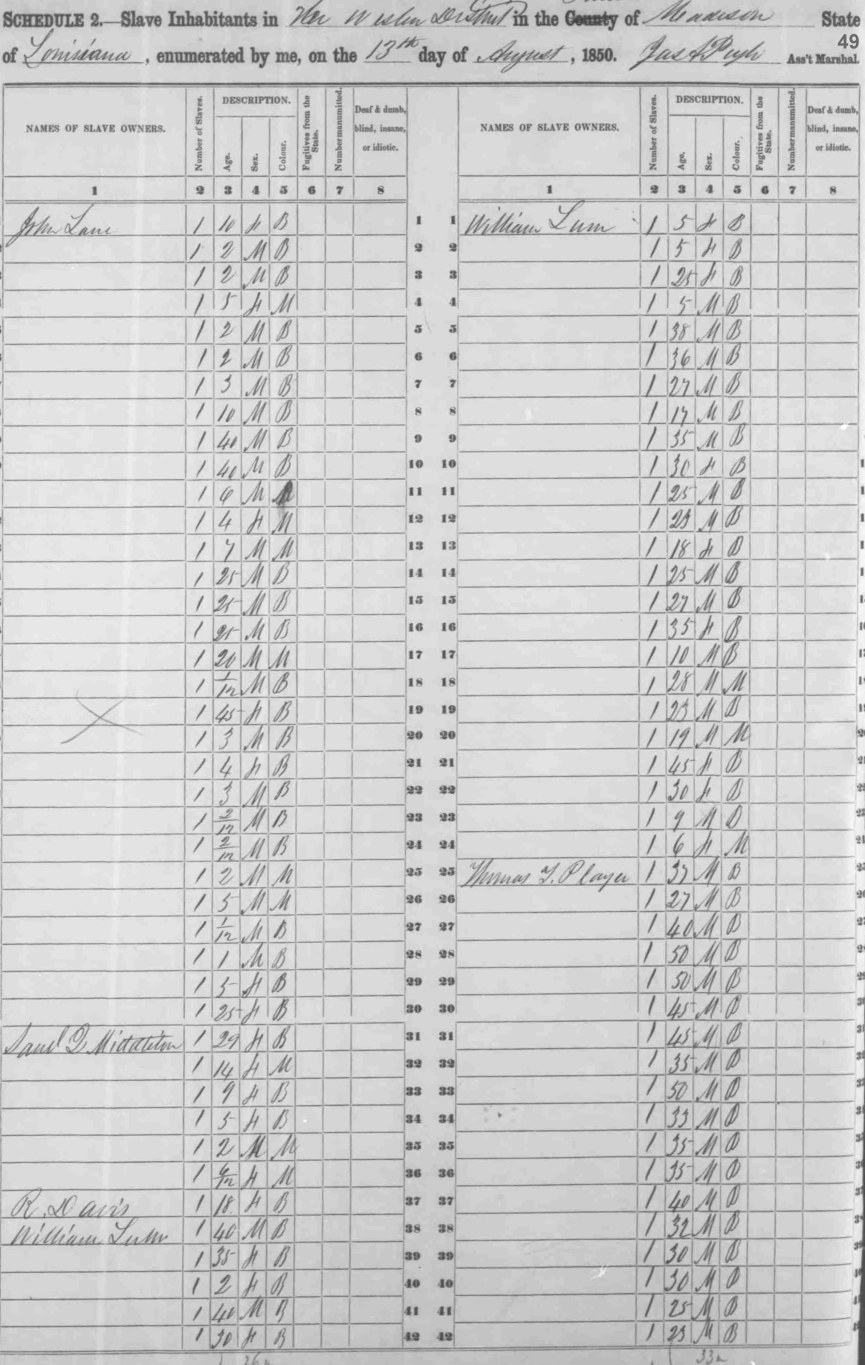 SCHEDULE 2.—Slave Inhabitants in The Western District in the County of Maddison State
of Louisiana, enumerated by me, on the 13th day of August, 1850. Jas A Pugh Ass't Marshal.
49
NAMES OF SLAVE OWNERS. Number of Slaves. DESCRIPTION. Age. Sex. Colour. Fugitives from the State. Number manumitted. Deaf & dumb, blind, insane, or idiotic.
1 2 3 4 5 6 7 8
John Lane 1 10 F B 1
1 2 M B 2
1 2 M B 3
1 5 F M 4
1 2 M B 5
1 2 M B 6
1 3 M B 7
1 10 M B 8
1 40 M B 9
1 40 M B 10
1 6 M M 11
1 4 F M 12
1 7 M M 13
1 25 M B 14
1 25 M B 15
1 25 M B 16
1 20 M M 17
1 1/12 M B 18
1 45 F B 19
1 3 M B 20
1 4 F B 21
1 3 M B 22
1 2/12 M B 23
1 2/12 M B 24
1 2 M M 25
1 5 M M 26
1 1/12 M B 27
1 1 M B 28
1 5 F B 29
1 25 F B 30
Saml D. Middleton 1 29 F B 31
1 14 F M 32
1 9 F B 33
1 5 F B 34
1 2 M M 35
1 6/12 F M 36
R. Davis 1 18 F B 37
William Lum 1 40 M B 38
1 35 F B 39
1 2 F B 40
1 40 M B 41
1 30 F B 42
NAMES OF SLAVE OWNERS. Number of Slaves. DESCRIPTION. Age. Sex. Colour. Fugitives from the State. Number manumitted. Deaf & dumb, blind, insane, or idiotic.
1 2 3 4 5 6 7 8
1 William Lum 1 5 F B
2 1 5 F B
3 1 25 F B
4 1 5 M B
5 1 38 M B
6 1 36 M B
7 1 27 M B
8 1 17 M B
9 1 35 M B
10 1 30 F B
11 1 25 M B
12 1 23 M B
13 1 18 F B
14 1 25 M B
15 1 27 M B
16 1 35 F B
17 1 10 M B
18 1 28 M M
19 1 23 M B
20 1 19 M M
21 1 45 F B
22 1 30 F B
23 1 9 M B
24 1 6 F M
25 Thomas Y. Player 1 37 M B
26 1 27 M B
27 1 40 M B
28 1 50 M B
29 1 50 M B
30 1 45 M B
31 1 45 M B
32 1 35 M B
33 1 50 M B
34 1 33 M B
35 1 35 M B
36 1 35 M B
37 1 40 M B
38 1 32 M B
39 1 30 M B
40 1 30 M B
41 1 25 M B
42 1 23 M B